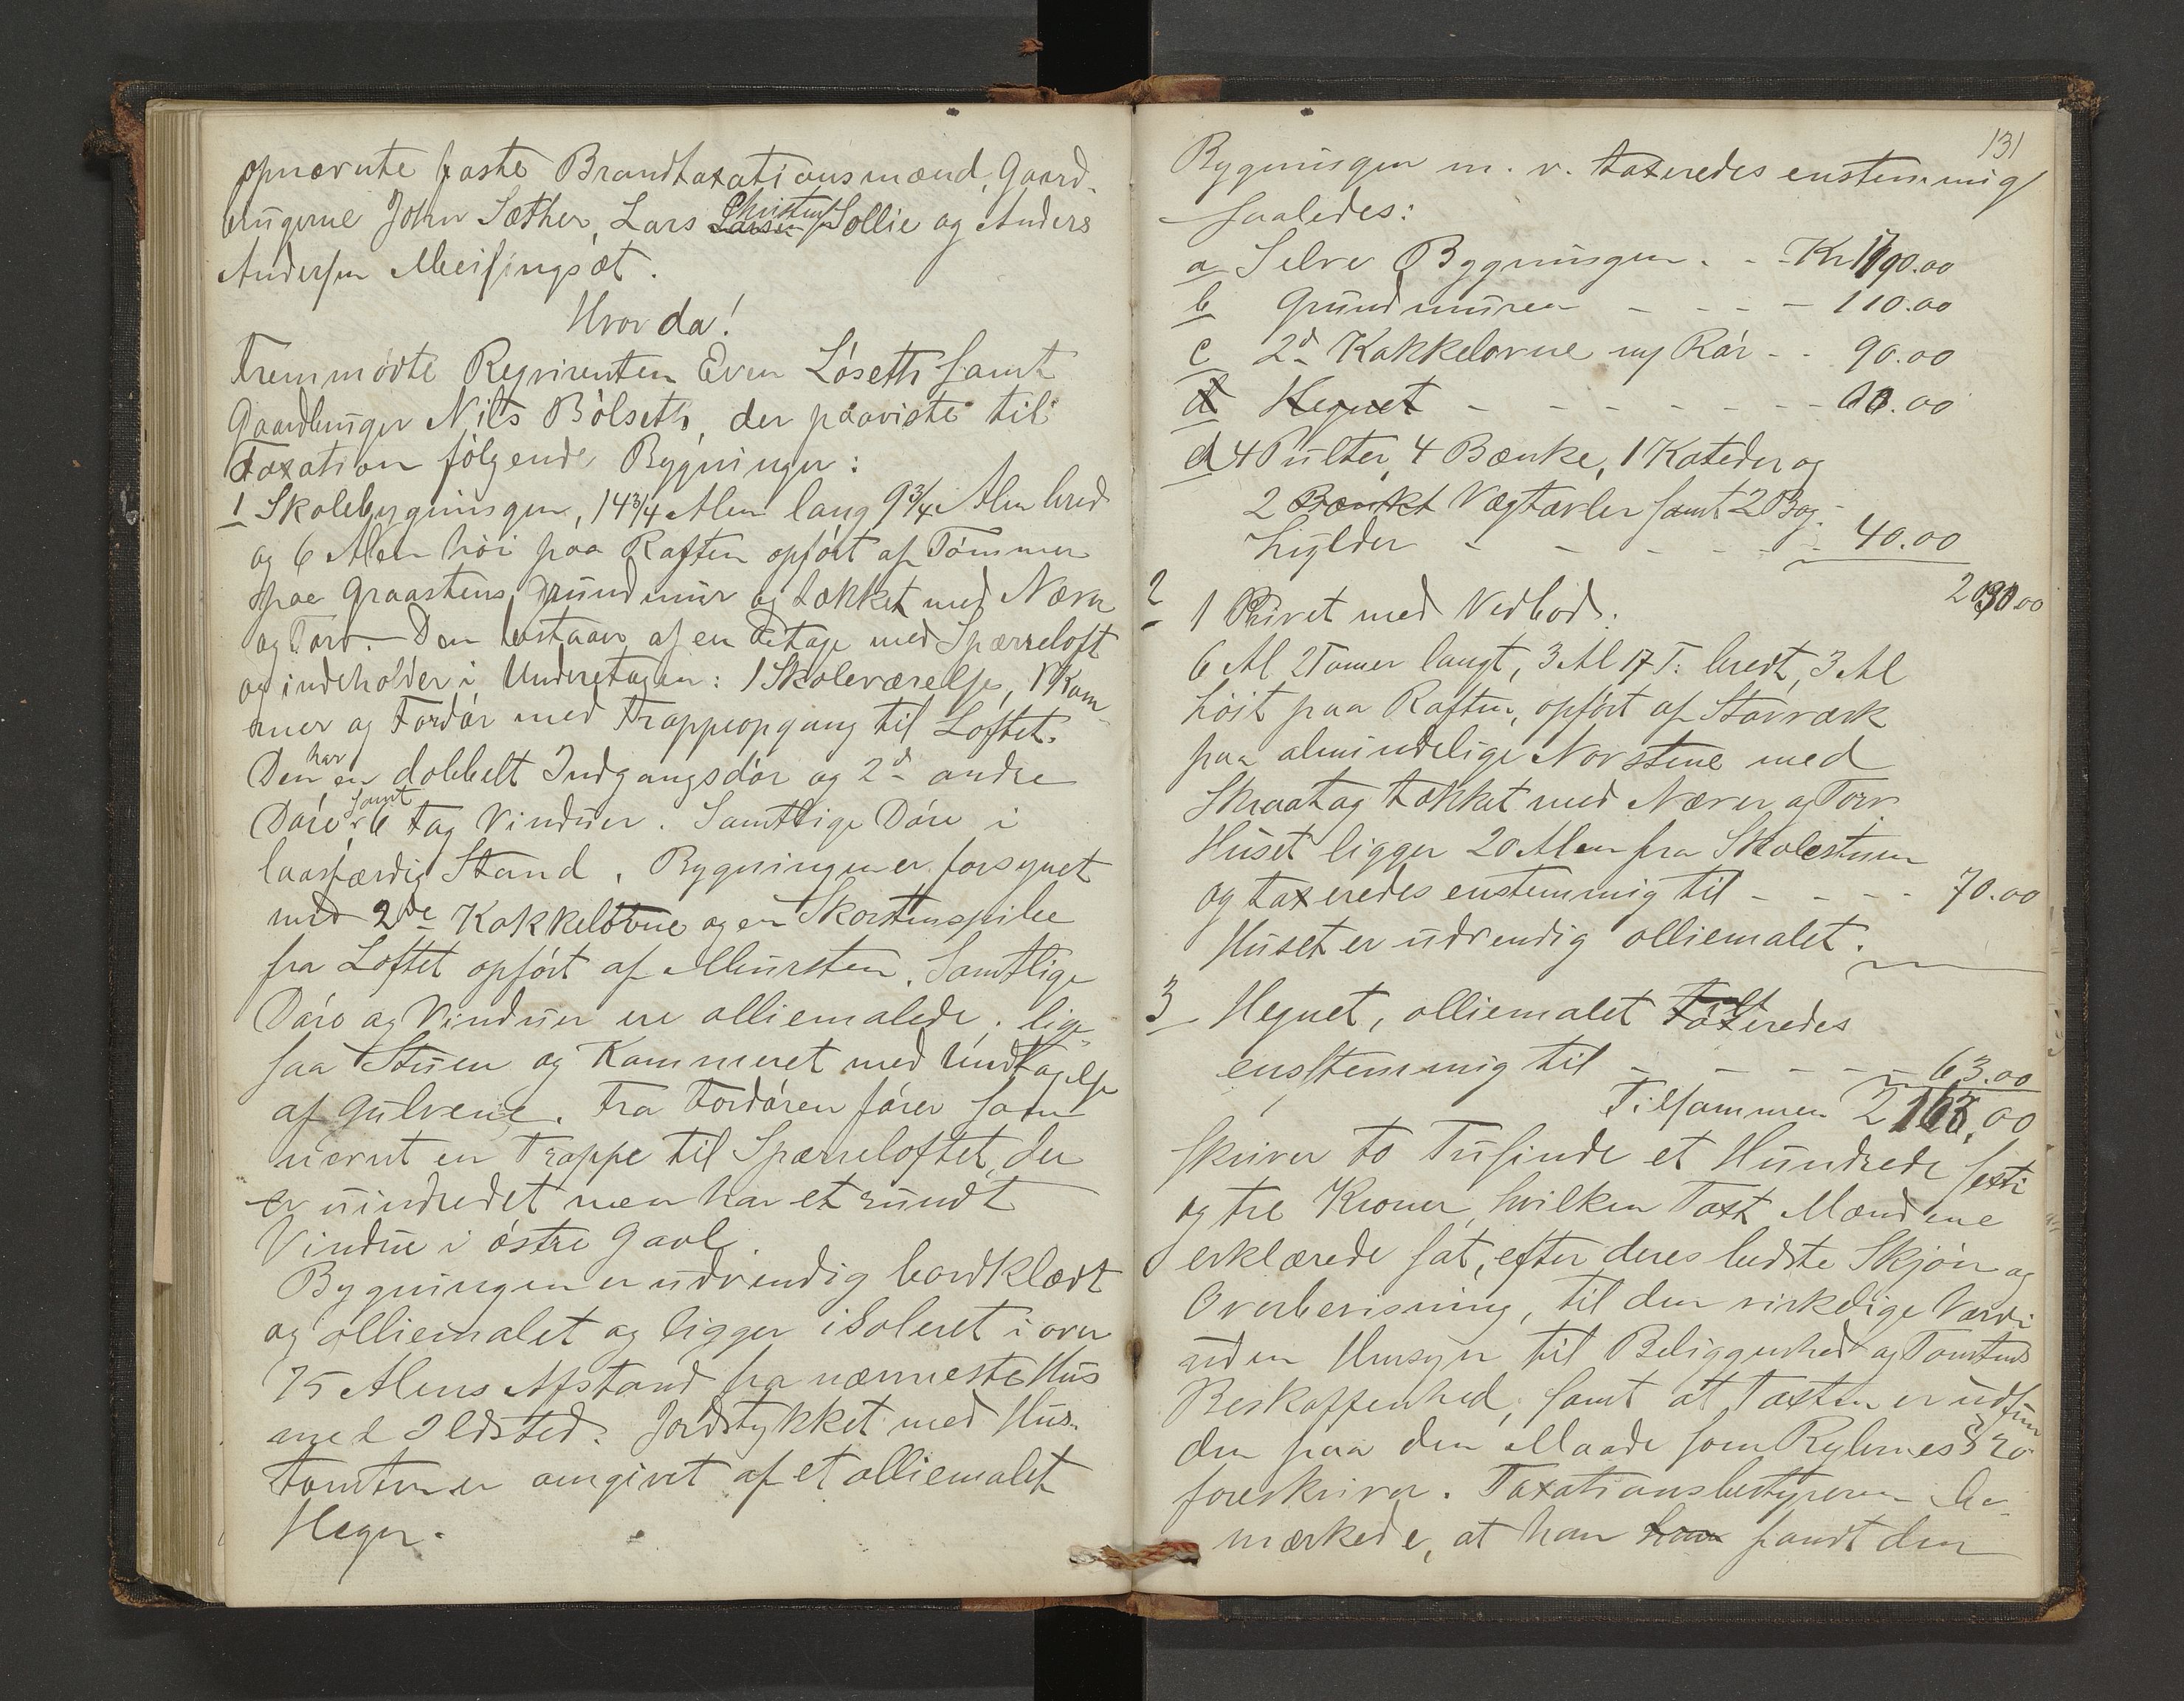 opnævnte faste Brandtaxationsmænd, Gaard-
brugerne John Sæther, Lars Larsen Christens Sollie og Anders
Andersen Meisingsæt.
Hvor da!
Fremmødte Reqvirenten Even Løseth samt
Gaardbruger Nils Bölseth, der paaviste til
Taxation følgende Bygninger:
1 Skolebygningen, 14 3/4 Alen lang 9 3/4 Alen bred
og 6 Alen høi paa Raften opført af Tømmer
paa Graastens Grundmur og tækket med Næver
og Torv. Den bestaar af en Etage med Spærreloft
og indeholder i Underetagen: 1 Skoleværelse, 1 Kam-
mer og Fordør med Trappeopgang til Loftet.
Den har en dobbelt Indgangsdør og 2d andre
Døre samt 6 fag Vinduer. Samtlige Døre i
laasfærdig Stand. Bygningen er forsynet
med 2de Kakkelovne og en Skorstenspibe
fra Loftet opført af Mursten. Samtlige
Døre og Vinduer ere olliemalede. lige-
saa Stuen og Kammeret med Undtagelse
af Gulvene. Fra Fordøren fører som
nævnt en Trappe til Spærreloftet, der
er uindredet men har et rundt
Vindue i østre Gavl.
Bygningen er udvendig bordklædt
og olliemalet og ligger isoleret i over
75 Alens Afstand fra nærmeste Hus
med Ildsted. Jordstykket med Hus-
tomten er omgivet af et olliemalet
Hegn.
131
Bygningen m. v. taxeredes enstemmig
saaledes:
a Selve Bygningen . - Kr 1790.00
b Grundmuren - - - - 110.00
c 2d Kakkelovne og Rør - - 90.00
d Hegnet - - - - - - - .00
d 4 Pulter, 4 Bænke, 1 Kateder og
2 Bænke Vægtavler samt 2 Bog-
hylder - - - - - - 40.00
2030.00
2 1 Privet med Vedbod.
6 Al 2 Tomer langt, 3 Al 17 T. bredt, 3 Al
høit paa Raften, opført af Stavværk
paa almindelige Novstene med
Skraatag tækket med Næver og Torv.
Huset ligger 20 Alen fra Skolestuen
og taxeredes enstemmig til - - - - 70.00
Huset er udvendig olliemalet.
3 Hegnet, olliemalet Taxeredes
enstemmig til - - - - - 63.00
Tilsammen 2163,00
skriver to Tusinde et Hundrede sexti
og tre Kroner, hvilken Taxt Mændene
erklærede sat, efter deres bedste Skjøn og
Overbevisning, til den virkelige Værdi
uden Hensyn til Beliggenhed og Tomtens
Beskaffenhed, samt at Taxten er udfun-
den paa den Maade som Reglernes § 20
foreskriver. Taxationsbestyreren be-
mærkede, at han han fandt den